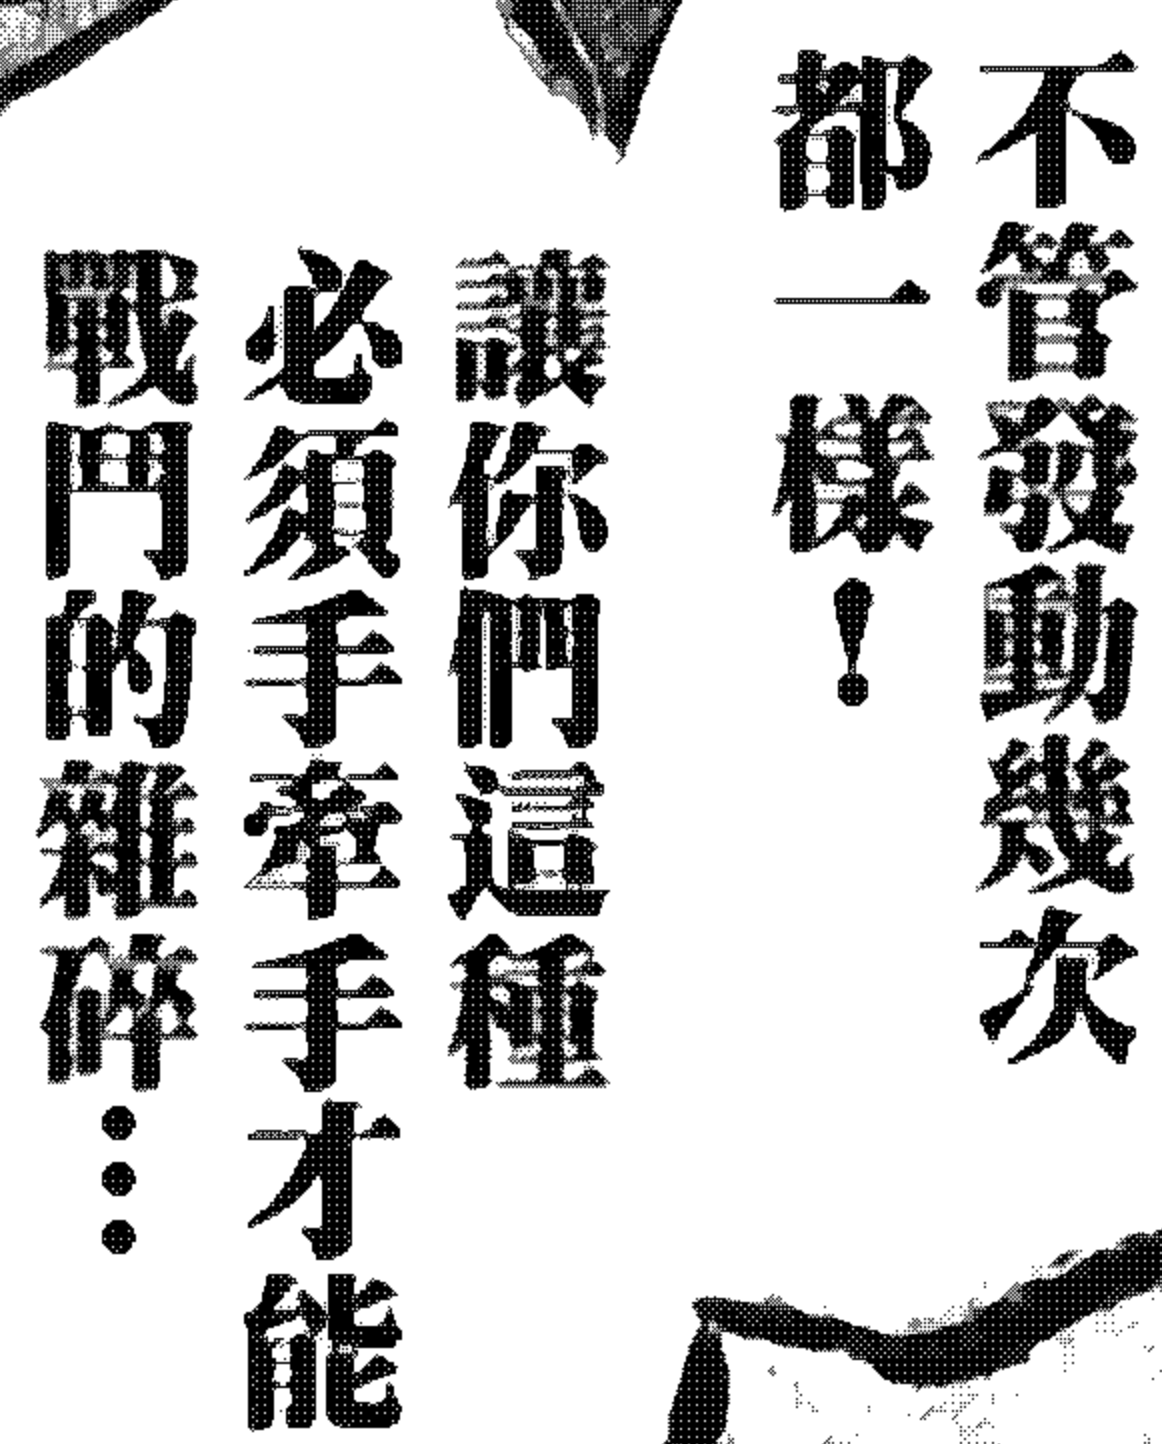 不管發動幾次
都一樣！
讓你們這種
必須手牽手才能
戰鬥的雜碎…